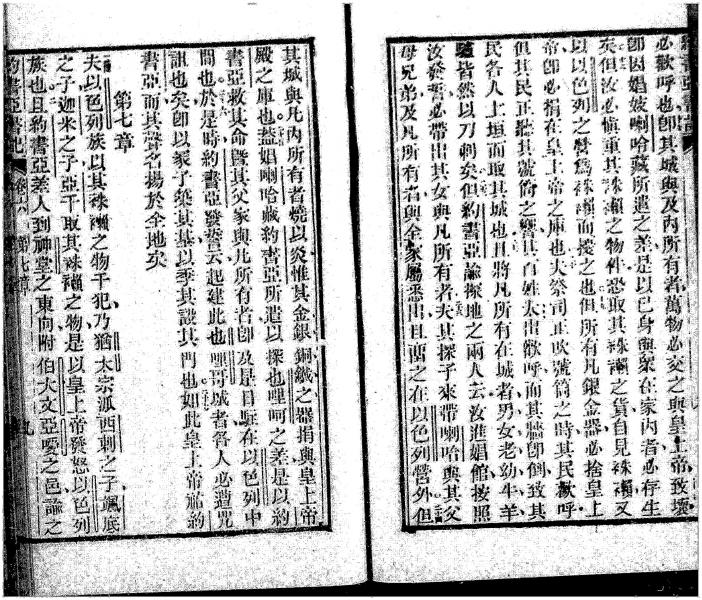 必歡呼也卽其城與及內所有者萬物必交之與皇上帝致壞
卽因娼妓喇哈藏所遣之差是以已身與衆在家內者必存生
矣但汝必愼重其袾襰之物件恐取其袾襰之貨自見袾襰又
以以色列之營爲袾襰而擾之也但所有凡銀金器必捨皇上
帝卽必捐在皇上帝之庫也夫祭司正吹號筒之時其民歡呼
但其民正聽其號筒之響其百姓太出歡呼而其牆卽倒致其
民各人上垣而取其城也且將凡所有在城者男女老幼牛羊
驢皆然以刀刺矣但約書亞諭探地之兩人云汝進娼館按照
汝發誓必帶出其女與凡所有者夫其探子來帶喇哈與其父
母兄弟及凡所有者與全家屬悉出且置之在以色列營外但
其城與凡內所有者燒以炎惟其金銀銅鐵之器捐與皇上帝
殿之庫也蓋娼喇哈藏約書亞所遣以探也哩呵之差是以約
書亞救其命曁其父家與凡所有者卽及是日駐在以色列中
間也於是時約書亞發誓云起建此也哩哥城者各人必遭咒
詛也矣卽以冢子築其基以季其設其門也如此皇上帝祐約
書亞而其聲名揚於全地矣
第七章
夫以色列族以其袾襰之物干犯乃猶大宗派西剌之子颯底
之子迦米之子亞干取其袾襰之物是以皇上帝發怒以色列
族也且約書亞差人到神堂之東向附伯大文亞噯之邑諭之
約書亞書記 卷六 第七章 九